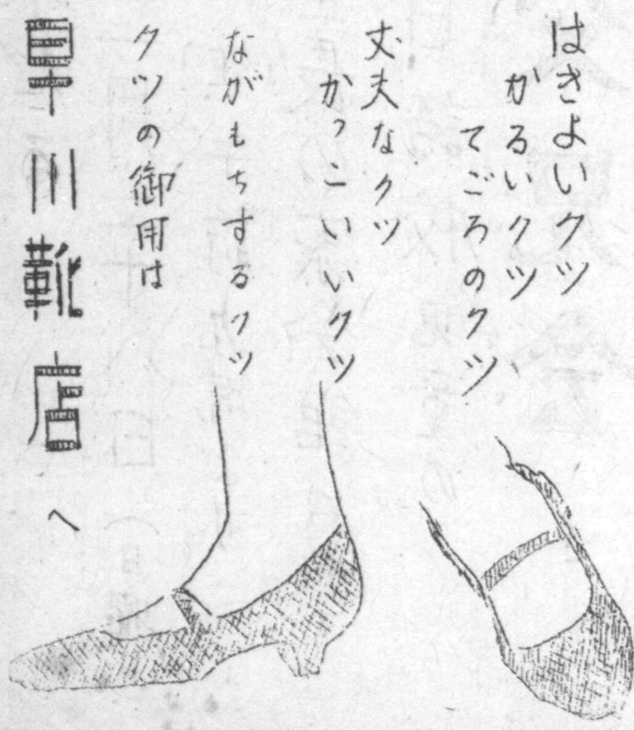 はきよいクツ
かるいクツ
てごろのクツ
丈夫なクツ
かっこいいクツ
ながもちするクツ
クツの御用は
早川靴店へ